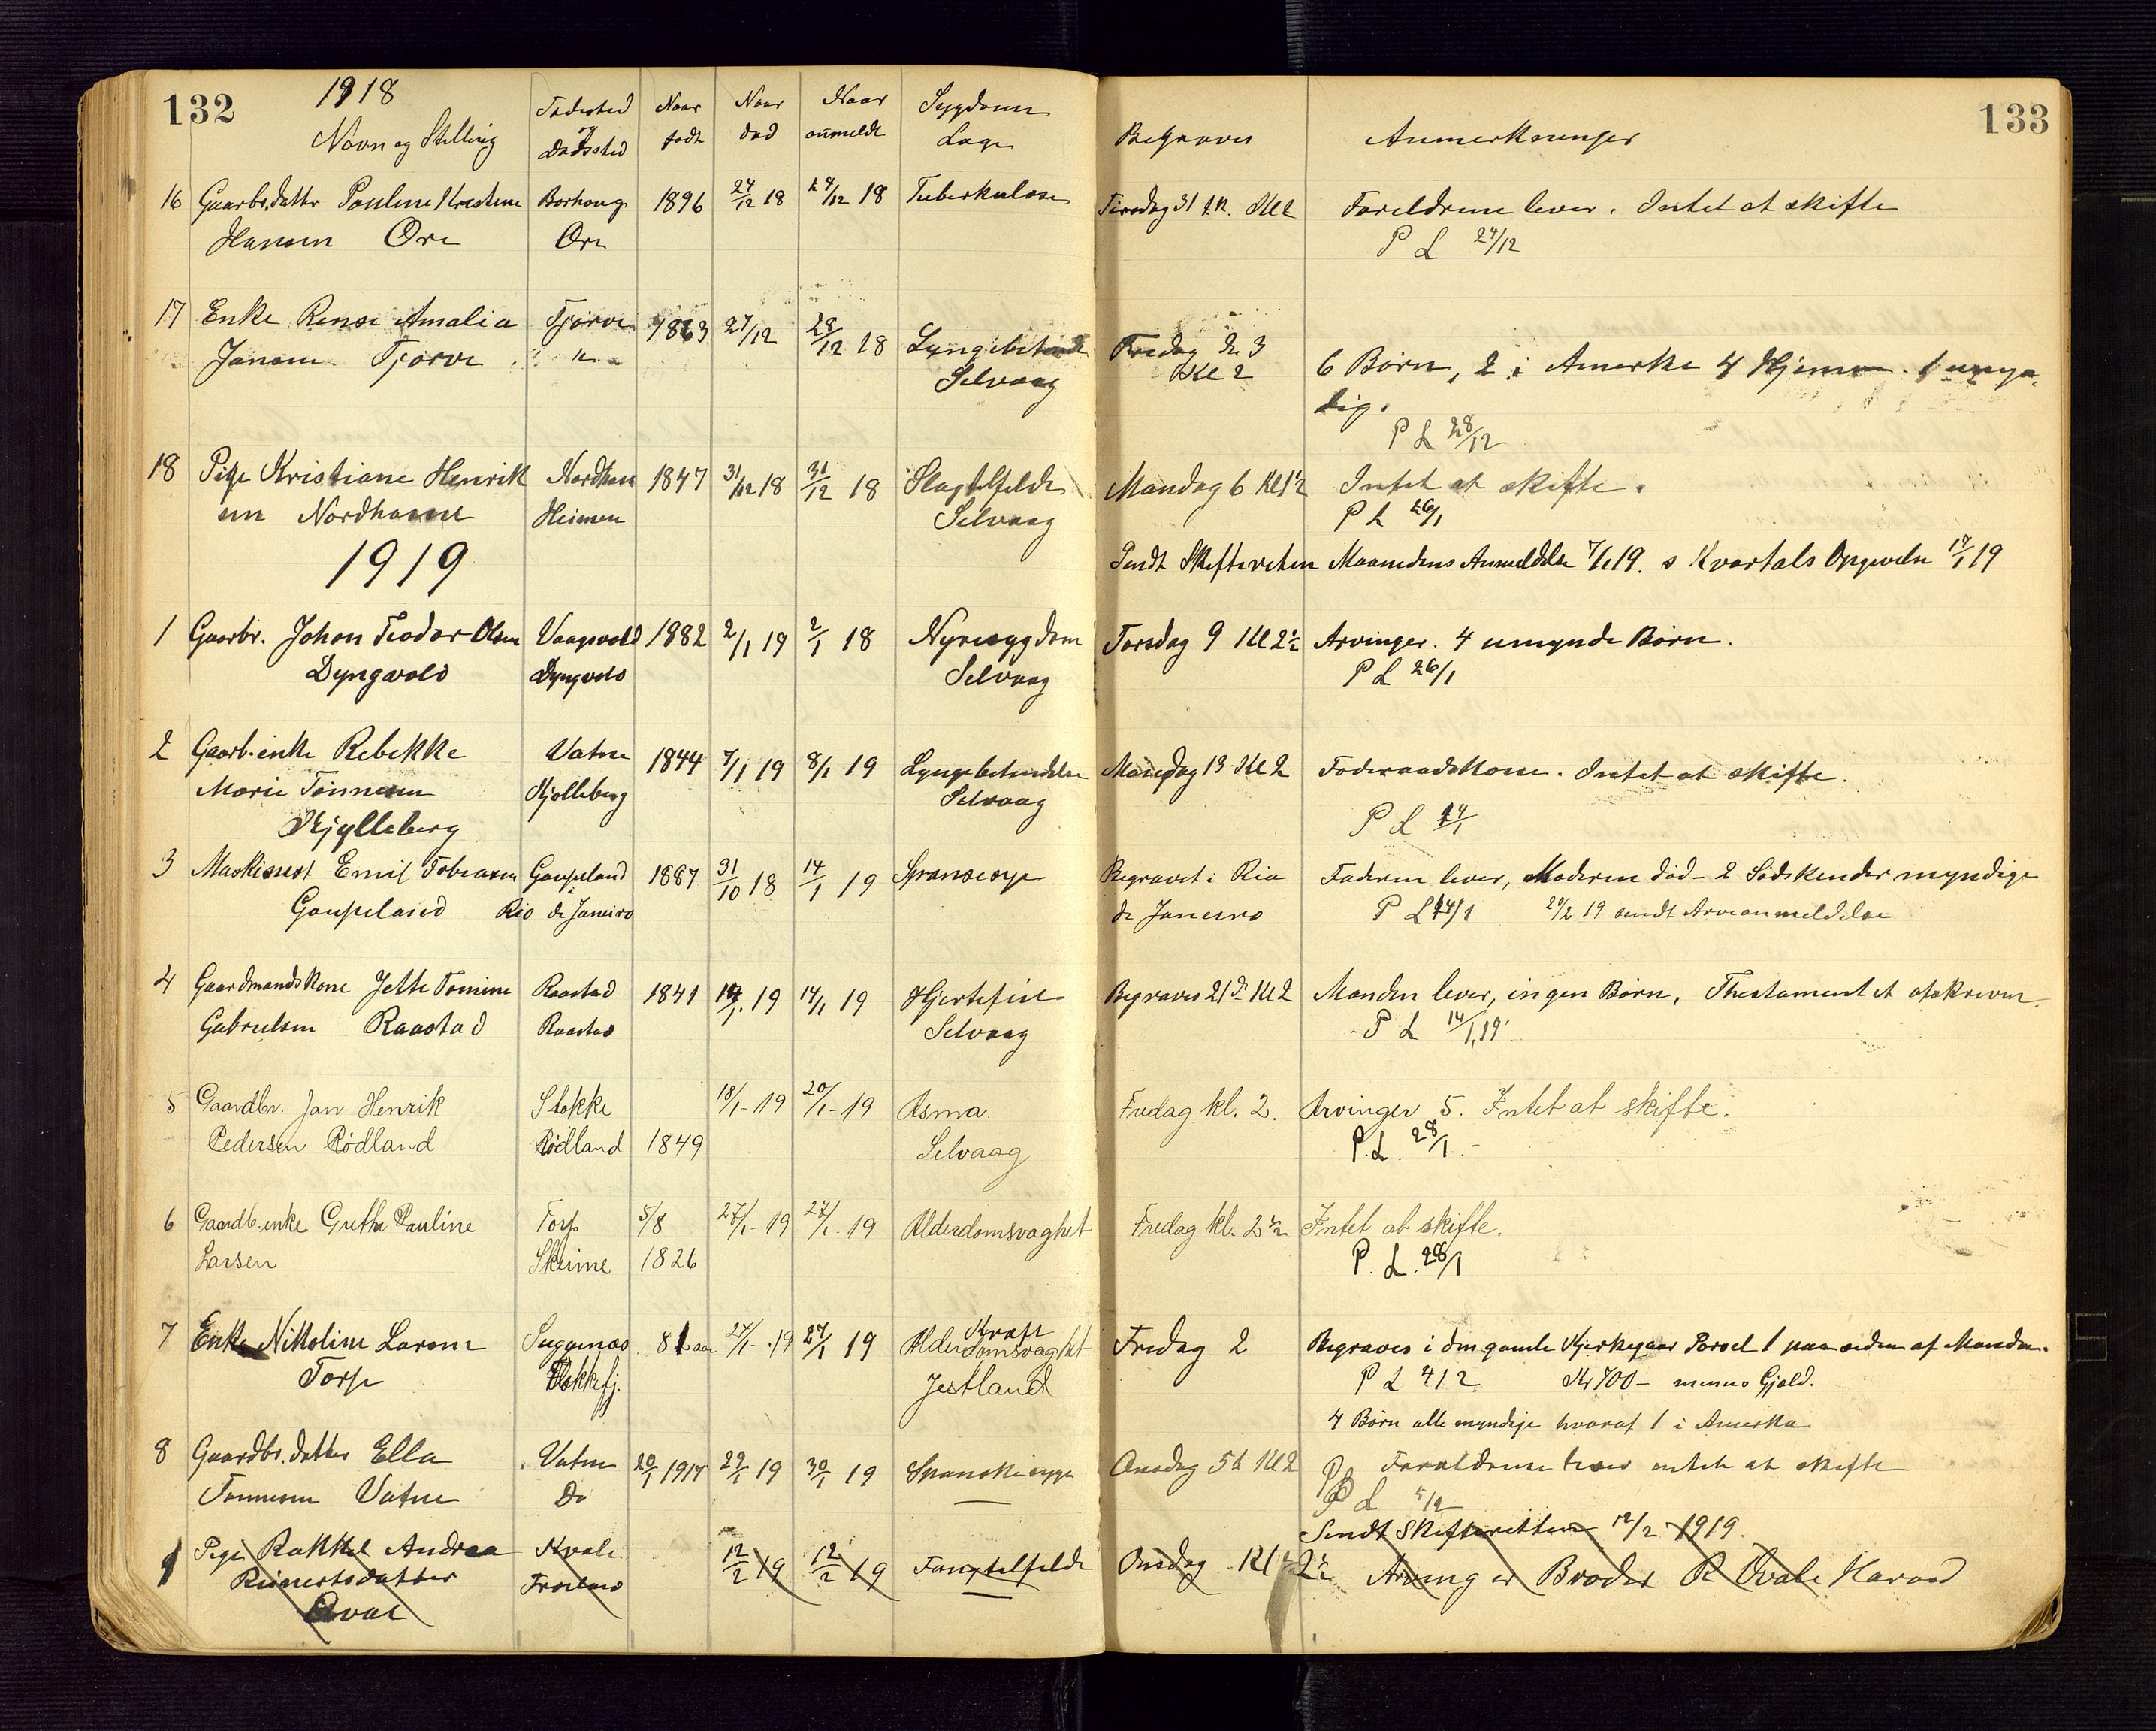 132
1918
Navn og Stilling
Fødested
og
Dødssted
Naar
født
Naar
død
Naar
anmeldt
Sygdom
Læge
Begraves
Anmerkninger
133
16 Gaarbr. datter Pauline Kristine Borhaug 1896 24/12 18 24/12 18 Tuberkulose Tirsdag 31 Kl 2 Foreldrene lever. Intet at skifte
Hansen Ore Ore P L 24/12
17 Enke Amalia Tjørve 1863 27/12 28/12 18 Lungebetendelse Fredag den 3
Jansen Tjørve Selvaag Kl 2 6 Børn, 2 i Amerka 4 Hjemme. 1 umyn-
dig.
P L 28/12
18 Pige Kristiane Henrik Nordhasse 1847 31/12 18 31/12 18 Slagtilfelde Mandag 6 Kl 1½ Intet at skifte.
sen Nordhasse Heimen Selvaag P L
1919 Sendt Skifteretten Maanedens Anmeldelse 7/1 19. o Kvartals Opgavelse 17/1 19
1 Gaarbr. Johan Teodor Olsen Vaagsvold 1882 2/1 19 2/1 18 Nyresygdom Torsdag 9 Kl 2½ Arvinger. 4 umynde Børn.
Dyngvold Dyngvold Selvaag P L 26/1
2 Gaarb. enke Rebekke Vatne 1844 7/1 19 8/1 19 Lungebetendelse Mandag 13 Kl 2 Foderaadskone. Intet at skifte.
Marie Tønnesen Kjølleberg Selvaag
Kjylleberg P L 14/1
3 Maskinest Emil Tobiasen Gaupeland 1887 31/10 18 14/1 19 Spansksyge Begravet i Rio Faderen lever, Moderen død - 2 Sødskender myndige
Gaupeland Rio de Janeiro de Janeiro P L 14/1 sendt Arveanmeldelse
4 Gaardmandskone Jette Tomine Raastad 1841 14/1 19 14/1 19 Hjertefeil Begraves 21de Kl 2 Manden lever, ingen Børn, Thestamentet afskreven.
Gabrielsen Raastad Raastad Selvaag P L 14/1 19
5 Gaardbr. Jan Henrik Stokke 18/1-19 20/1-19 Asma. Fredag kl. 2. Arvinger 5. Intet at skifte.
Pedersen Rødland Rødland 1849 Selvaag P. L. 28/1
6 Gaardb. enke Grethe Pauline Torp 5/8 27/1-19 27/1-19 Alderdomsvaghet Fredag kl. 2½ Intet at skifte.
Larsen Skeime 1826 P. L. 28/1
7 Enke Nikoline Larsen 81 aar 27/1-19 27/1 19 Alderdomsvaghet Fredag 2 Begraves i den gamle Kjerkegaar Parsel 1 paa siden af Manden.
Torp Jestland P L 4/2 Kr 700 - menus Gjæld.
4 Børn alle myndige hvoraf 1 i Amerka
8 Gaardbr. datter Ella Vatne 20/1 1917 29/1 19 30/1 19 Spanskesyge Onsdag 5te Kl 2 Foreldrene lever intet at skifte
Tønnesen Vatne Do P L 5/2
Sendt Skifteretten 12/2 1919.
9 Pige Rakkel Andrea Kvale 12/2 19 12/2 19 Onsdag Kl 2½ Arving er Broder R Qvale
Reinertsdatter
Qvale